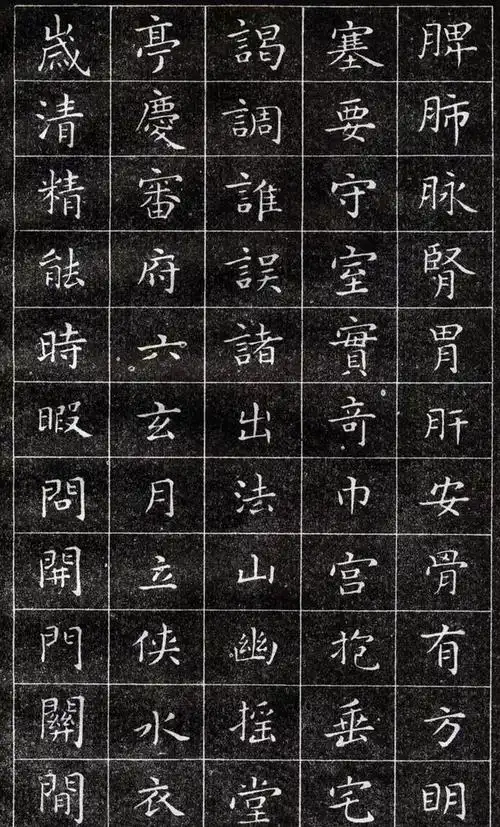 脾肺脉腎胃肝安骨有方明
塞要守室實奇巾宫抱垂宅
謁調誰誤諸出法山幽摇堂
亭慶審府六玄月立侠水衣
歳清精能時暇問開門關閒